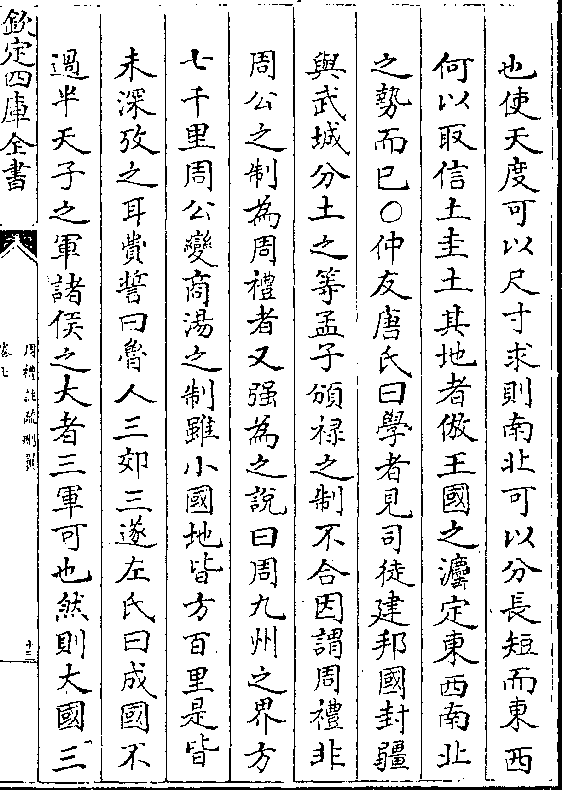 也使天度可以尺寸求則南北可以分長短而東西
何以取信土圭土其地者倣王國之灋定東西南北
之勢而已○仲友唐氏曰學者見司徒建邦國封疆
與武城分土之等孟子頒祿之制不合因謂周禮非
周公之制為周禮者又强為之說曰周九州之界方
七千里周公變商湯之制雖小國地皆方百里是皆
未深攷之耳費誓曰魯人三郊三遂左氏曰成國不
過半天子之軍諸侯之大者三軍可也然則大國三
欽定四庫全書
周禮註疏刪翼
卷七
十三